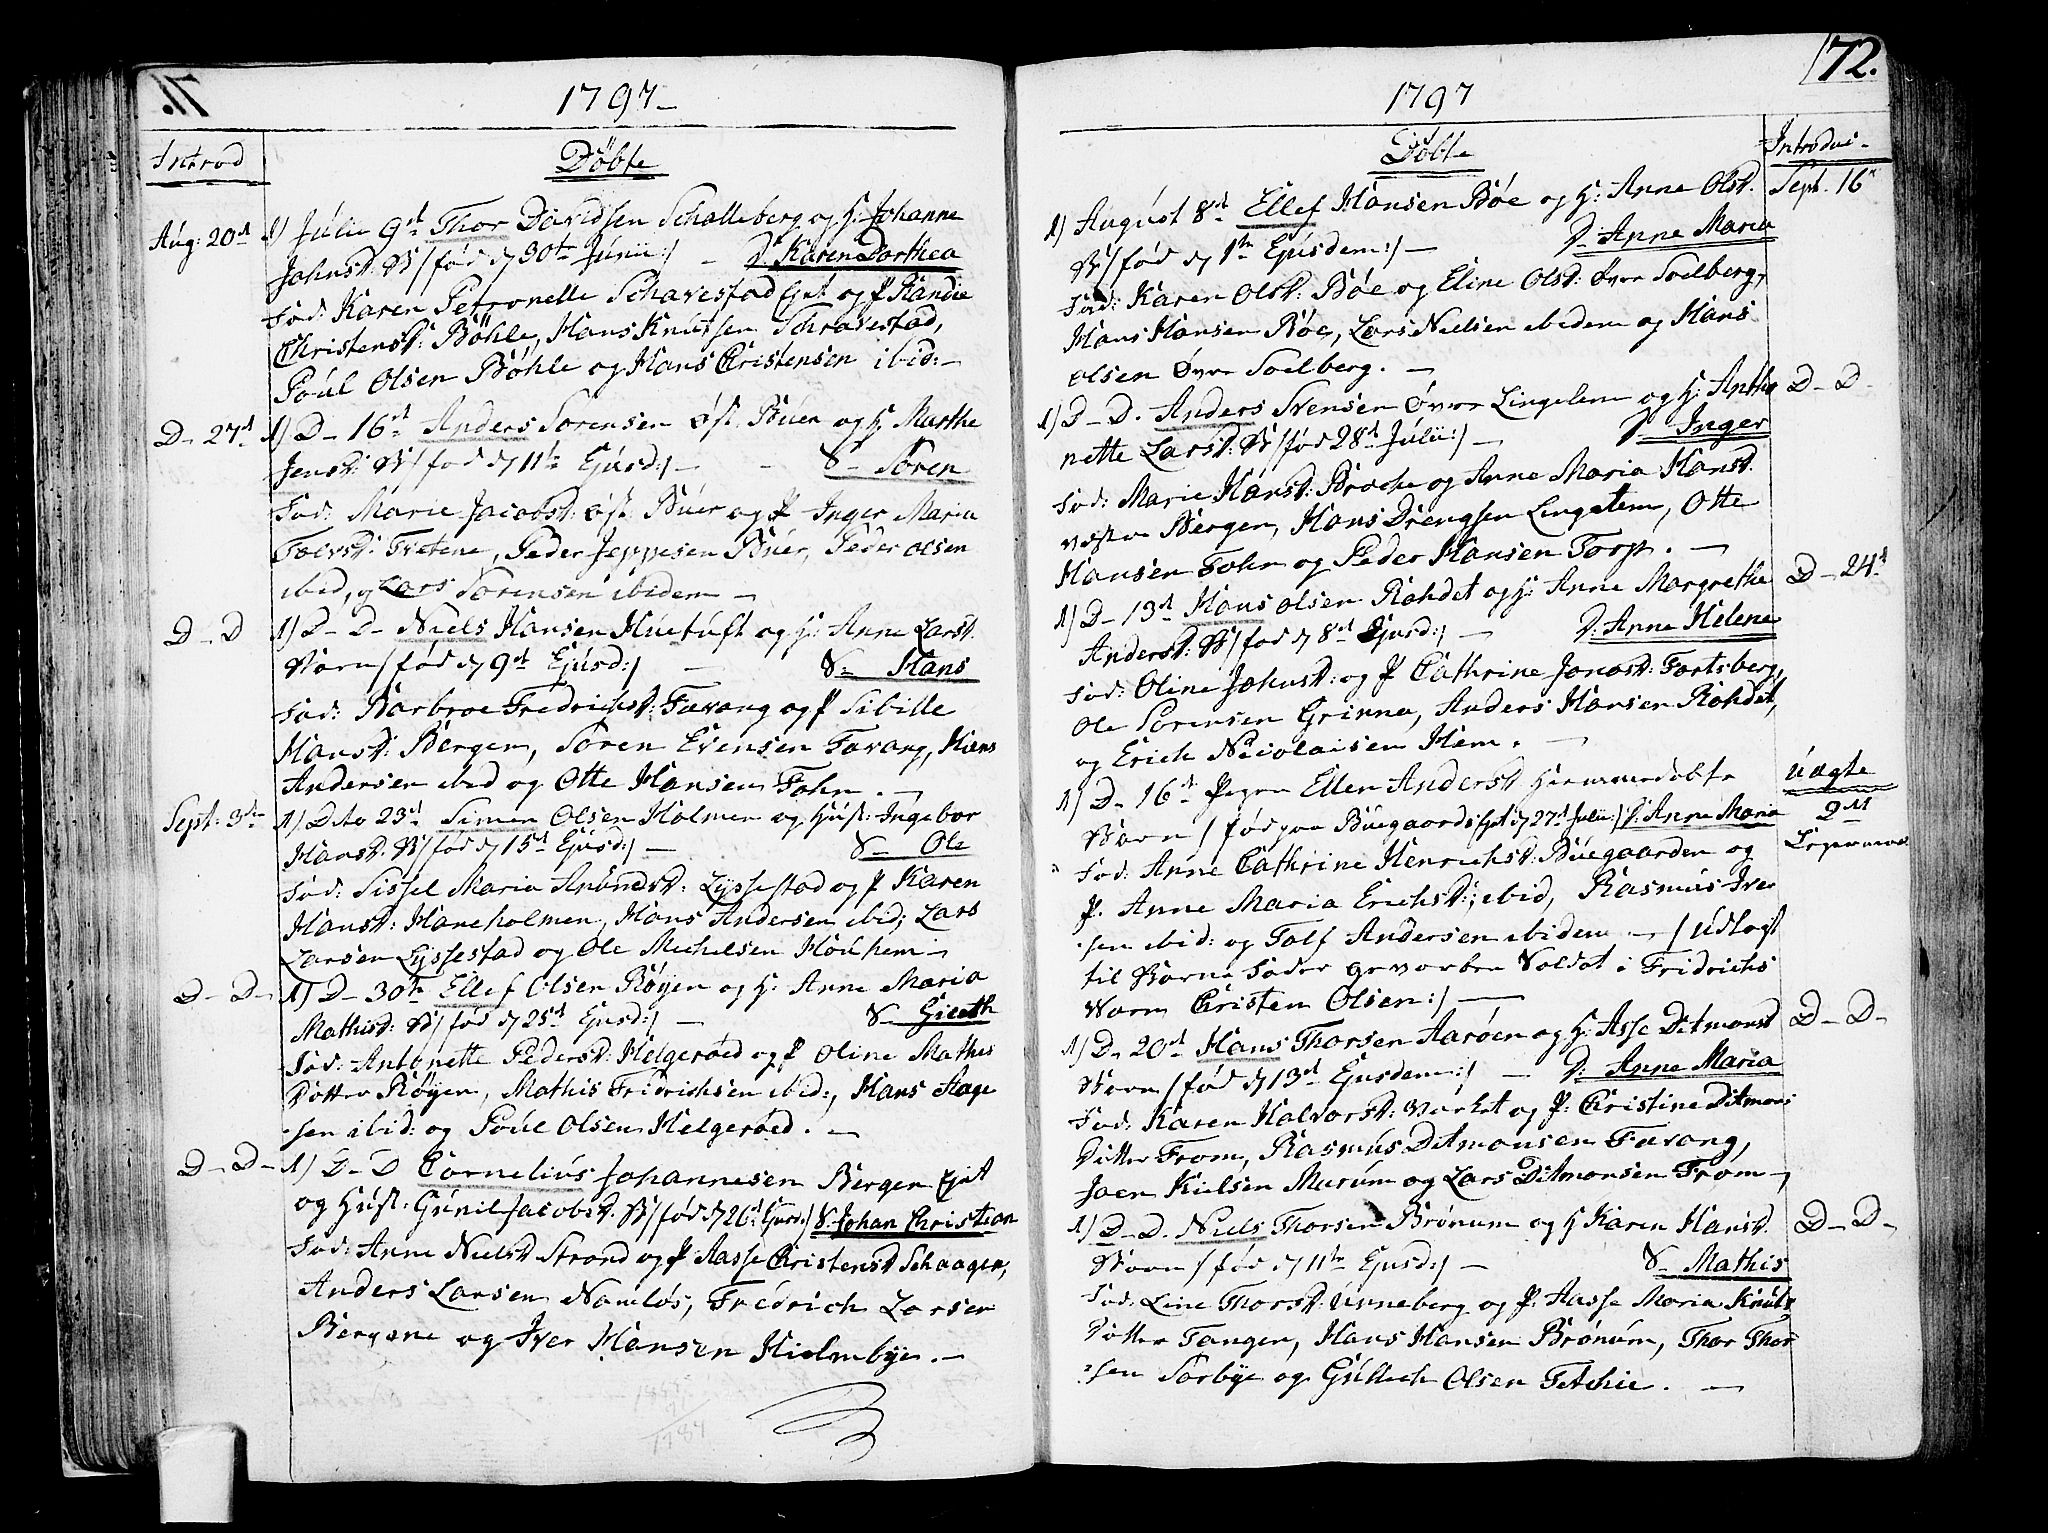 71.
1797
Introd
Döbte
Aug: 20d 1) Julii 9d Thor Davidsen Schalleberg og H: Johanne
Johnsd: B/ fød d 30te Junii:/ - D: Karen Dorthea
Fad: Karen Petronelle Schavestad Ejet og P Randie
Christensd: Böhle, Hans Knutsen Schravestad,
Poul Olsen Böhle og Hans Christensen ibid:-
D- 27d 1) D- 16d Anders Sörensen øst Buer og H Marthe
Jensd: B/ fød d 11te Ejusd:/ - - S- Sören
Fad: Marie Jacobsd: øst Buer og P Inger Maria
Tolvsd: Tretene, Peder Jeppesen Buer, Peder Olsen
ibid, og Lars Sörensen ibidem -
D- D 1) D- D- Niels Hansen Huetuft og H: Anne Larsd.
Barn/ fød d 9d Ejusd:/ - S- Hans
Fad: Barbroe Fredrichsd: Favang og P Sibille
Hansd: Bergen, Sören Evensen Favang, Hans
Andersen ibid og Otte Hansen Fohn. -
Sept: 3de 1) Dito 23d Simen Olsen Holmen og Hust: Ingebor
Hansd. B/ fød d 15d Ejusd:/ - S- Ole
Fad: Sissel Maria Anundsd: Lyssestad og P Karen
Hansd: Haneholmen, Hans Andersen ibid; Lars
Larsen Lyssestad og Ole Michelsen Houhem -
D- D- 1) D- 30te Ellef Olsen Röyen og H: Anne Maria
Mathisd: B/ fød d 25d Ejusd:/ - S- Gieeth
Fad: Antonette Pedersd: Helgeröed og P Oline Mathis
Dotter Röyen, Mathis Fridrichsen ibid:, Hans Aage
sen ibid: og Poul Olsen Helgeröed. -
D- D- 1) D- D Cornelius Johannesen Bergen Ejet
og Hust: Gunil Jacobsd. B/ fød d 26d Ejusd:/ S. Johan Christian
Fad: Anne Nielsd Strand og P Aasse Christensd Schaagen,
Anders Larsen Namløs, Fredrich Larsen
Bergene og Iver Hansen Hielmbye. -
72.
1797
Döbte
Introduc-
1) August 8d Ellef Hansen Böe og H: Anne Olsd. Sept. 16d
B/ fød d 1te Ejusdem:/ - D- Anne Maria
Fad: Karen Olsd: Böe og Eline Olsd: Øvre Soelberg,
Hans Hansen Böe, Lars Nielsen ibidem og Hans
Olsen Øvre Soelberg. -
1) D- D. Anders Svensen Øvre Lingelem og H: Antho D- D-
nette Larsd: B/ fød 28d Julii:/ - D- Inger
Fad: Marie Hansd: Broche og Anne Maria Hansd.
vestre Bergen, Hans Drengsen Lingelem, Otte
Hansen Fohn og Peder Hansen Torp. -
1) D- 13d Hans Olsen Rahdet og H: Anne Margrethe D- 24d
Andersd: B/ fød d 8d Ejusd:/ - D: Anne Helene
Fad: Oline Johnsd: og P Cathrine Jonasd: Fortsberg,
Ole Sörensen Grinna, Anders Hansen Rahdet,
og Erich Nicolaisen Hem. -
1) D- 16d Pigen Ellen Andersd hiemmedøbte Uægte
Barn/ fød paa Buegaards Ejet d 27d Julii:/ D: Anne Maria 2d
Fad: Anne Cathrine Henrichsd: Buegaarden og
P. Anne Maria Erichsd:, ibid, Rasmus Iver
sen ibid: og Tolf Andersen ibidem - / Udlagt
til Barne Fader gevorben Soldat i Fridrichs
Værn Christen Olsen:/ -
1) D- 20d Hans Thorsen Aaröen og H: Asse Ditmansd D- D-
Barn/ fød d 13d Ejusdem:/ - D: Anne Maria
Fad: Karen Halvorsd: Varket og P: Christine Ditmans
Dotter From, Rasmus Ditmansen Favang,
Joen Kielsen Murum og Lars Ditmansen From -
1) D- D. Niels Thorsen Brönum og H Karen Hansd. D- D-
Barn/ fød d 11te Ejusd:/ - S- Mathis
Fad: Line Thorsd: Unneberg og P. Aasse Maria Knuts
Dotter Tangen, Hans Hansen Brönum, Thor Thor
sen Sörbye og Gullech Olsen Fetchie. -